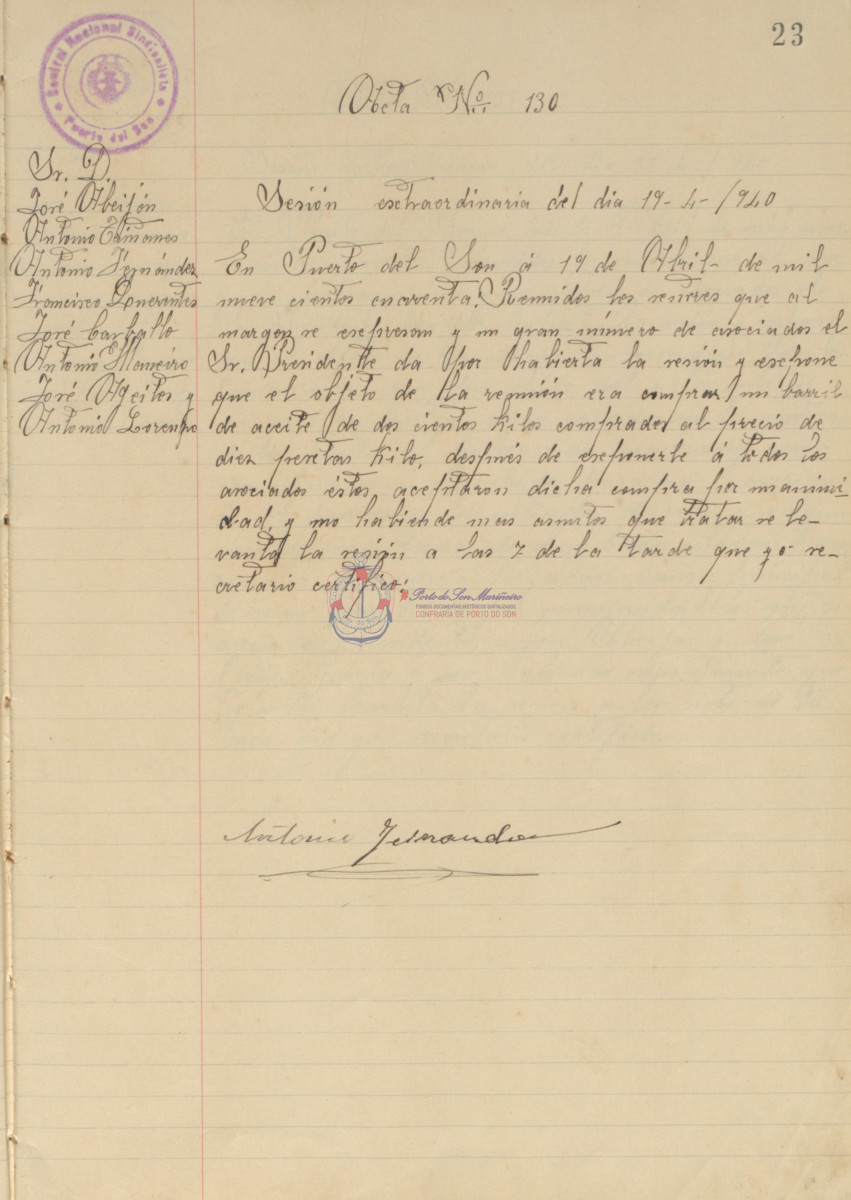 23
Central Nacional Sindicalista
Puerto del Son
Acta Nº 130
Sr. D.
José Abeijón
Antonio Támanes
Antonio Fernández
Francisco
José Carballo
Antonio Maneiro
José Ageitos y
Antonio Lorenzo
Sesión extraordinaria del dia 19-4-/940
En Puerto del Son á 19 de Abril de mil
nueve cientos cuarenta. Reunidos los señores que al
margen se expresan y un gran número de asociados el
Sr. Presidente da por habierta la sesión y expone
que el objeto de la reunión era comprar un barril
de aceite de dos cientos kilos comprado al precio de
diez pesetas kilo, después de exponerle á todos los
asociados éstos aceptaron dicha compra por unanimi-
dad, y no habiendo mas asuntos que tratar se le-
vanta la sesión a las 7 de la tarde que yo se-
cretario certifico:
Porto do Son Mariñeiro
FONDOS DOCUMENTAIS HISTÓRICOS DIXITALIZADOS
CONFRARÍA DE PORTO DO SON
Antonio Fernandez